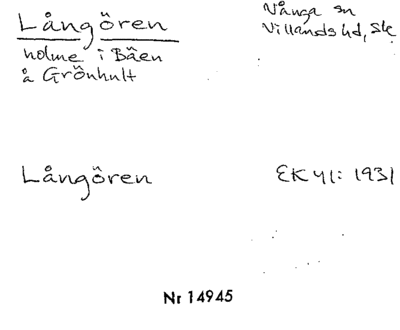 Långören
holme i Båen
å Grönhult
Vånga sn
Villands hd, Sk
Långören
EK 41: 1931
Nr 14945